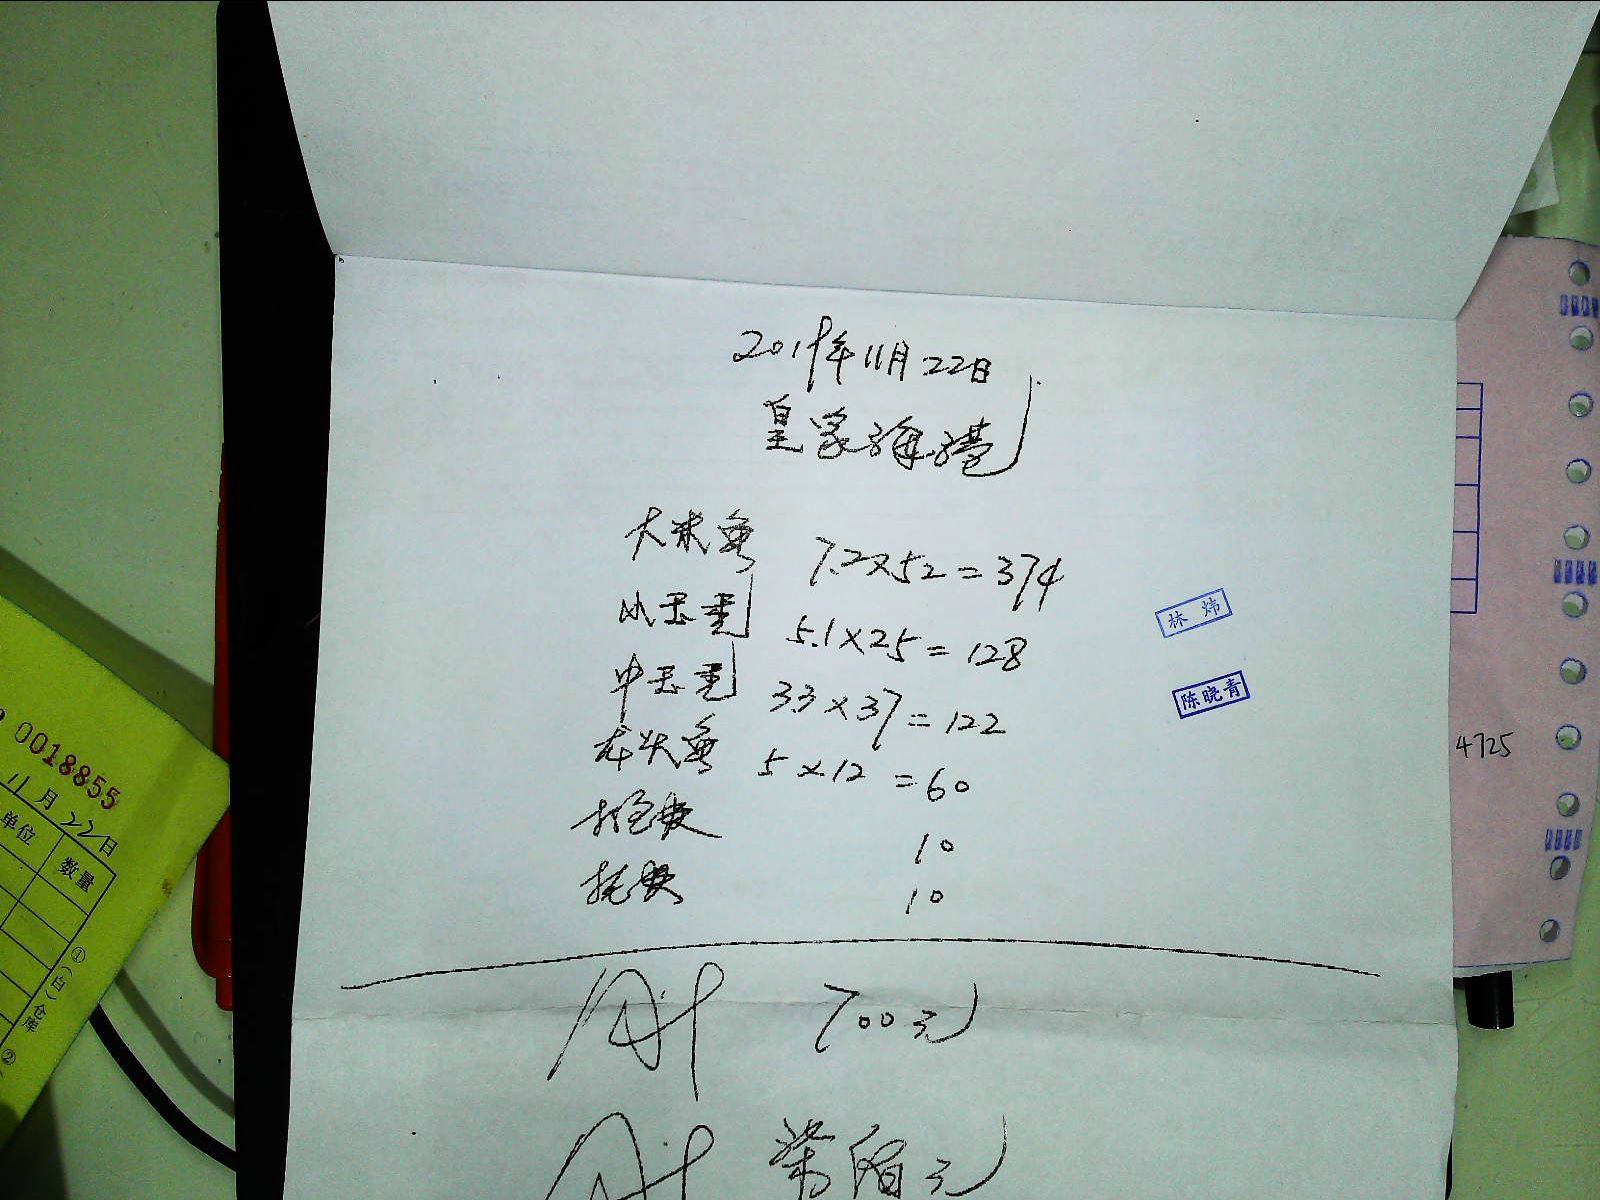 2019年11月22日
皇家海港
大米鱼 7.2×52=374
小玉秃 5.1×25=128
中玉秃 3.3×37=122
龙头鱼 5×12=60
10
10
合计 700元
合计 柒佰元
林炜
陈晓青
4725
0018855
11月22日
单位 数量
①(白)仓库 ②